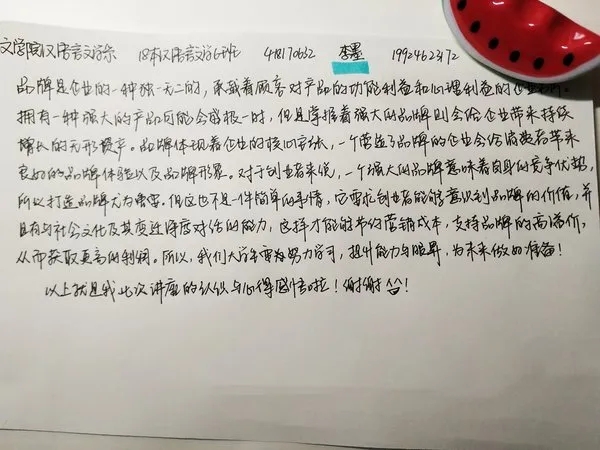 文学院汉语言文学系 18本汉语言文学6班 418170632 李墨 19924623172
品牌是企业的一种独一无二的,承载着顾客对产品的功能利益和心理利益的企业
拥有一种强大的产品可能会盛极一时,但是掌握着强大的品牌则会给企业带来持续
增长的无形资产。品牌体现着企业的核心主张,一个塑造了品牌的企业会给消费者带来
良好的品牌体验以及品牌形象。对于创业者来说,一个强大的品牌意味着自身的竞争优势,
所以打造品牌尤为重要。但这也不是一件简单的事情,它需求创业者能够意识到品牌的价值,并
具有与社会文化及其变迁深度对话的能力,这样才能够节约营销成本,支持品牌的高溢价,
从而获取更高的利润。所以,我们大学生需要努力学习,提升能力与眼界,为未来做好准备!
以上就是我此次讲座的认识与心得感悟啦!谢谢